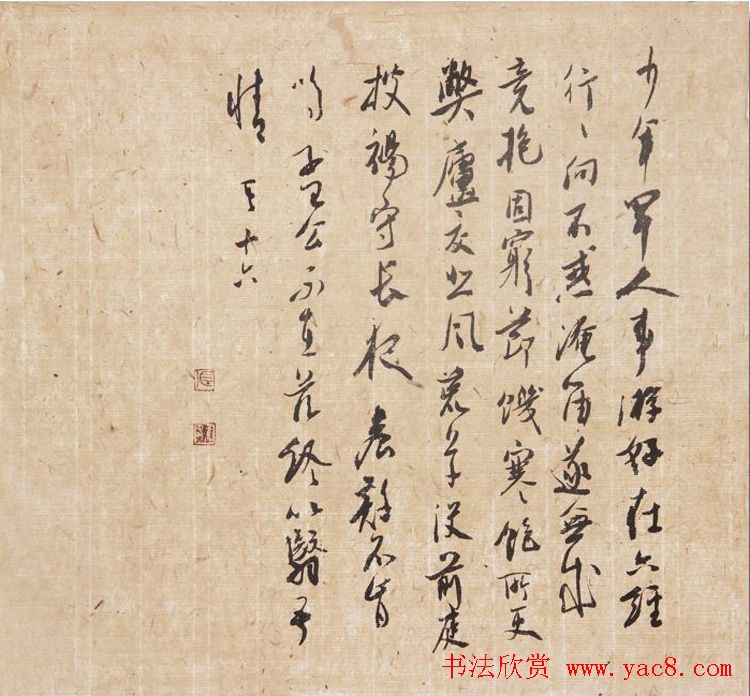 少年罕人事游好在六经
行行向不惑淹留遂無成
竟抱固窮節饑寒飽所更
弊廬交悲風荒草没前庭
披褐守長夜晨雞不肯
鳴孟公不在兹終以翳吾
情 其十六
书法欣赏 www.yac8.com